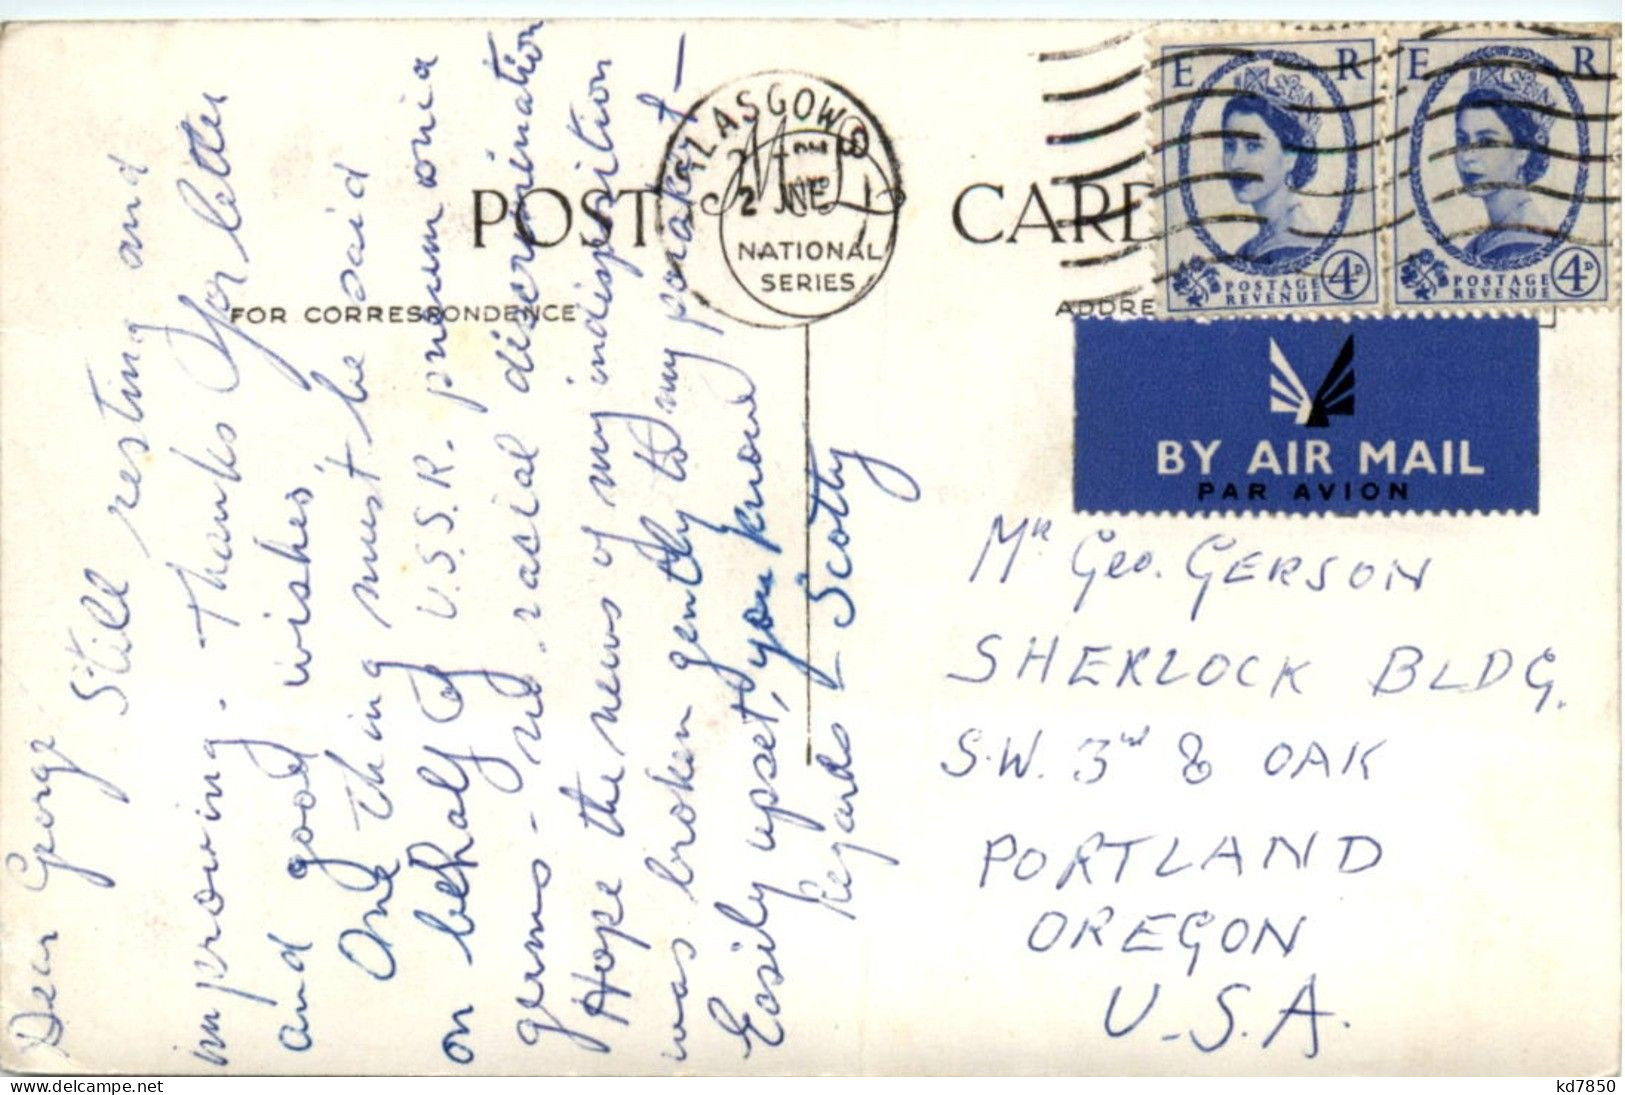 Dear George
Still resting and
improving. Thanks for letter
and good wishes
One thing must be said
on behalf of U.S.S.R. pneumonia
germs - no racial discrimination
Hope the news of my indisposition
was broken gently to my parakeet -
Easily upset, you know
Regards
Scotty
POST CARD
GLASGOW
2 JNE
NATIONAL
SERIES
FOR CORRESPONDENCE
ADDRE
E R
4D
POSTAGE
REVENUE
E R
4D
POSTAGE
REVENUE
BY AIR MAIL
PAR AVION
Mr Geo. GERSON
SHERLOCK BLDG.
S.W. 3rd & OAK
PORTLAND
OREGON
U.S.A.
kd7850